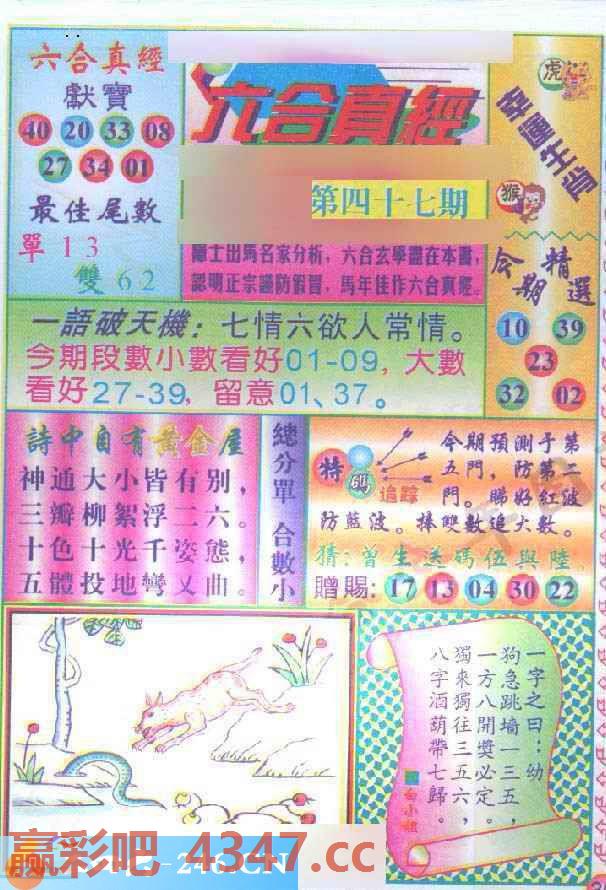 六合真經
獻寶
40 20 33 08
27 34 01
最佳尾數
單13
雙62
六合真經
第四十七期
隱士出馬名家分析，六合玄學盡在本書，
認明正宗謹防假冒，馬年佳作六合真經。
虎
幸運生肖
猴
今期精選
10 39
23
32 02
一語破天機：七情六欲人常情。
今期段數小數看好01-09，大數
看好27-39，留意01、37。
詩中自有黃金屋
神通大小皆有別，
三瓣柳絮浮二六。
十色十光千姿態，
五體投地彎又曲。
總分單 合數小
特碼
追踪
今期預測于第
五門，防第二
門。睇好紅波
防藍波。捧雙數追大數。
猜：曾生送碼伍與陸
贈賜：17 13 04 30 22
一字之曰：幼
狗急跳墙一三五，
一方八開獎必定。
獨來獨往三五六，
八字酒葫帶七歸。
白小姐
赢彩吧 4347.cc